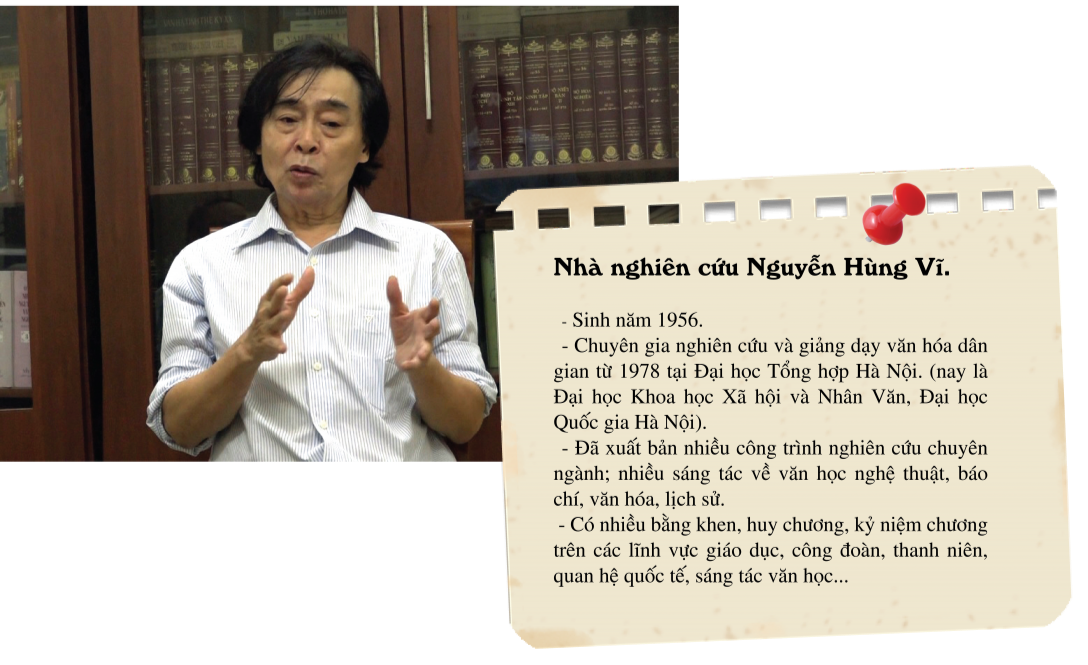 Nhà nghiên cứu Nguyễn Hùng Vĩ.
- Sinh năm 1956.
- Chuyên gia nghiên cứu và giảng dạy văn hóa dân
gian từ 1978 tại Đại học Tổng hợp Hà Nội. (nay là
Đại học Khoa học Xã hội và Nhân Văn, Đại học
Quốc gia Hà Nội).
- Đã xuất bản nhiều công trình nghiên cứu chuyên
ngành; nhiều sáng tác về văn học nghệ thuật, báo
chí, văn hóa, lịch sử.
- Có nhiều bằng khen, huy chương, kỷ niệm chương
trên các lĩnh vực giáo dục, công đoàn, thanh niên,
quan hệ quốc tế, sáng tác văn học...